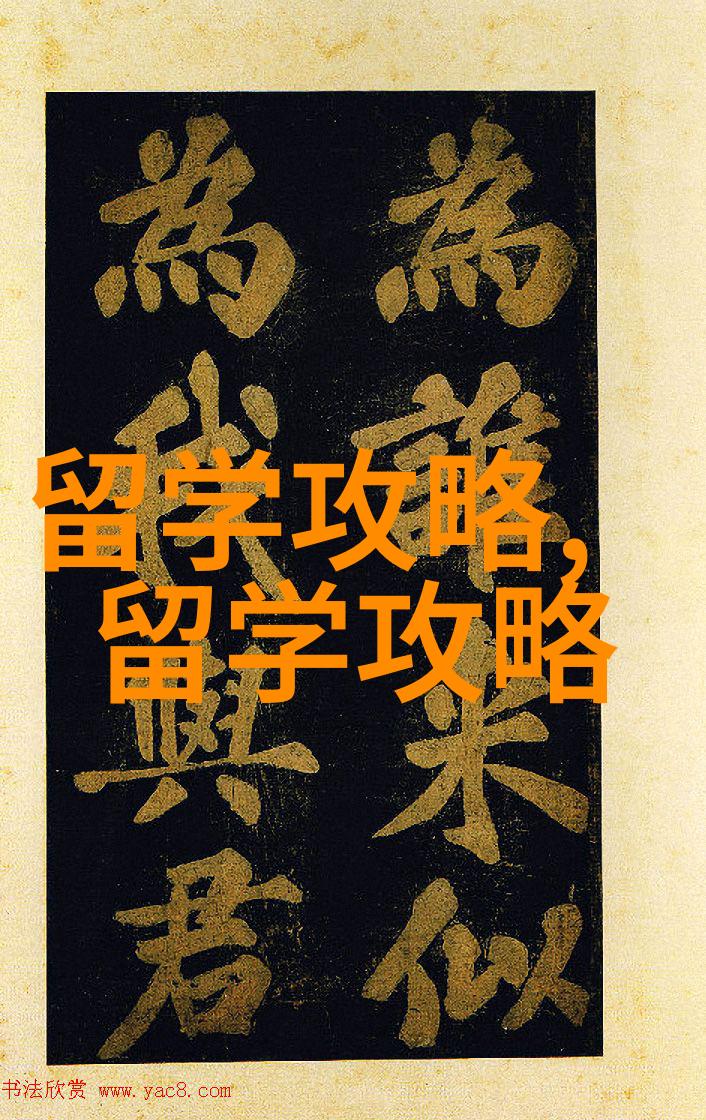 為誰来似
為我與君
留学攻略,
留学攻略
书法欣赏 www.yac8.com